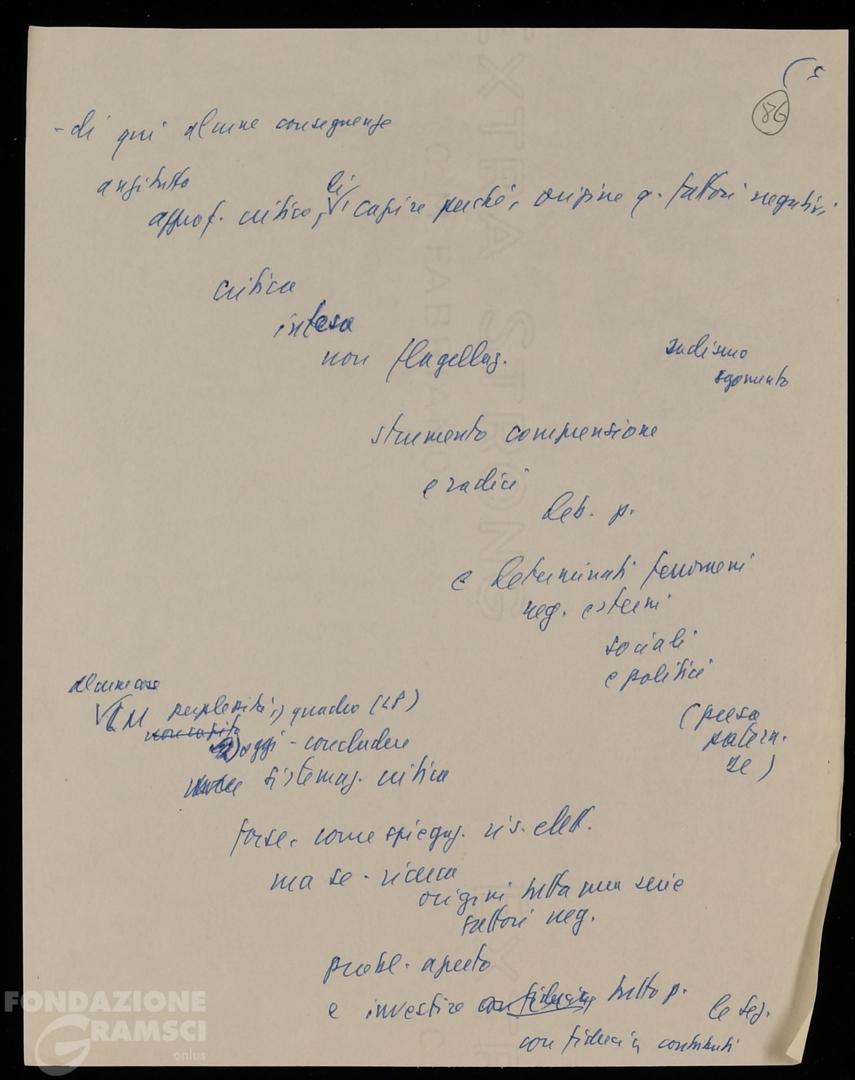 (5
86
- di qui alcune conseguenze
anzitutto
approf. critico, di capire perché, origine q. fattori negativi
critica
intesa
non flagellaz.
sadismo
sgomento
strumento comprensione
e radici
deb. p.
e determinati fenomeni
neg. esterni
sociali
e politici
(presa
patern.
se)
alcune cose
perplessità, quadro (LP)
non capito
2) oggi - concludere
sistemaz. critica
forse. come spiegaz. ris. elett.
ma se - ricerca
origini tutta una serie
fattori neg.
probl. aperto
e investire con fiducia tutto p.
le sez.
con fiducia, contributi
FONDAZIONE
GRAMSCI
onlus